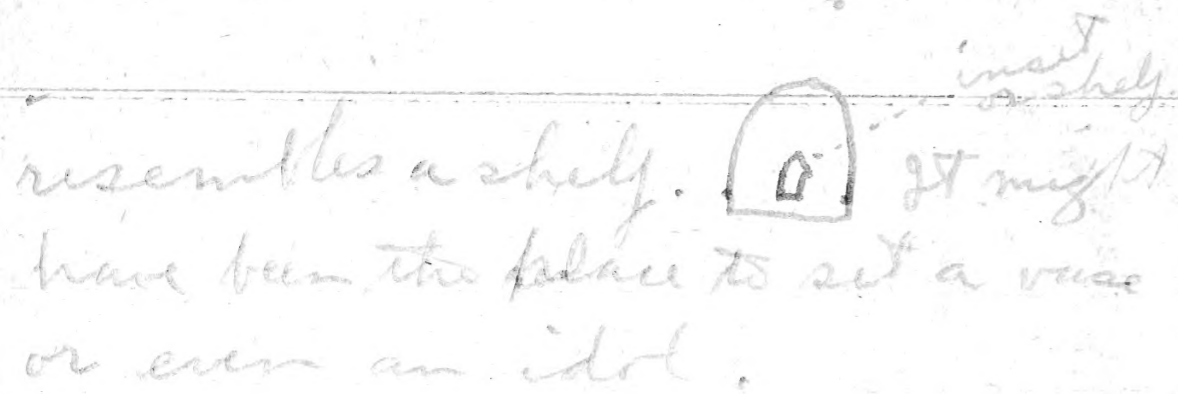 inset
or shelf.
resembles a shelf. It might
have been the place to set a vase
or even an idol.